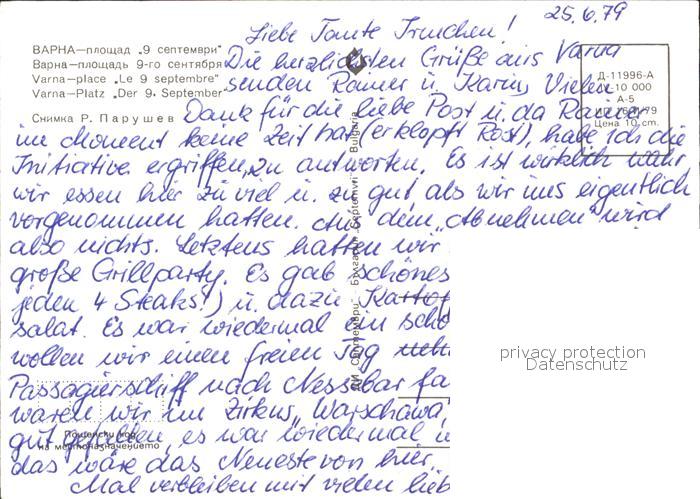 25.6.79
Liebe Tante Trinchen!
ВАРНА—площад "9 септември"
Варна—площадь 9-го сентября
Varna—place "Le 9 septembre"
Varna—Platz "Der 9. September"
Снимка Р. Парушев
Д-11996-А
10 000
А-5
Цена 10 cm.
Die herzlichsten Grüße aus Varna
senden Rainer u. Karin, Vielen
Dank für die liebe Post u. da Rainer
im Moment keine Zeit hat (er klopft Rost), habe ich die
Initiative ergriffen, zu antworten. Es ist wirklich wahr
wir essen hier zu viel u. zu gut als wir uns eigentlich
vorgenommen hatten. Aus dem „Abnehmen" wird
also nichts. Letztens hatten wir
große Grillparty. Es gab schönes
jeden 4 Steaks!) u. dazu Kartof
salat. Es war wiedermal ein schö
wollen wir einen freien Tag
Passagierschiff nach Nessebar fa
waren wir im Zirkus „Warschawa,
gut gefallen, es war wiedermal
das wäre das Neueste von hier.
Mal verbleiben mit vielen lieb
ДИ „Септември" – България „Septemvri" Bulgaria
Пощенски код
на местоназначението
privacy protection
Datenschutz